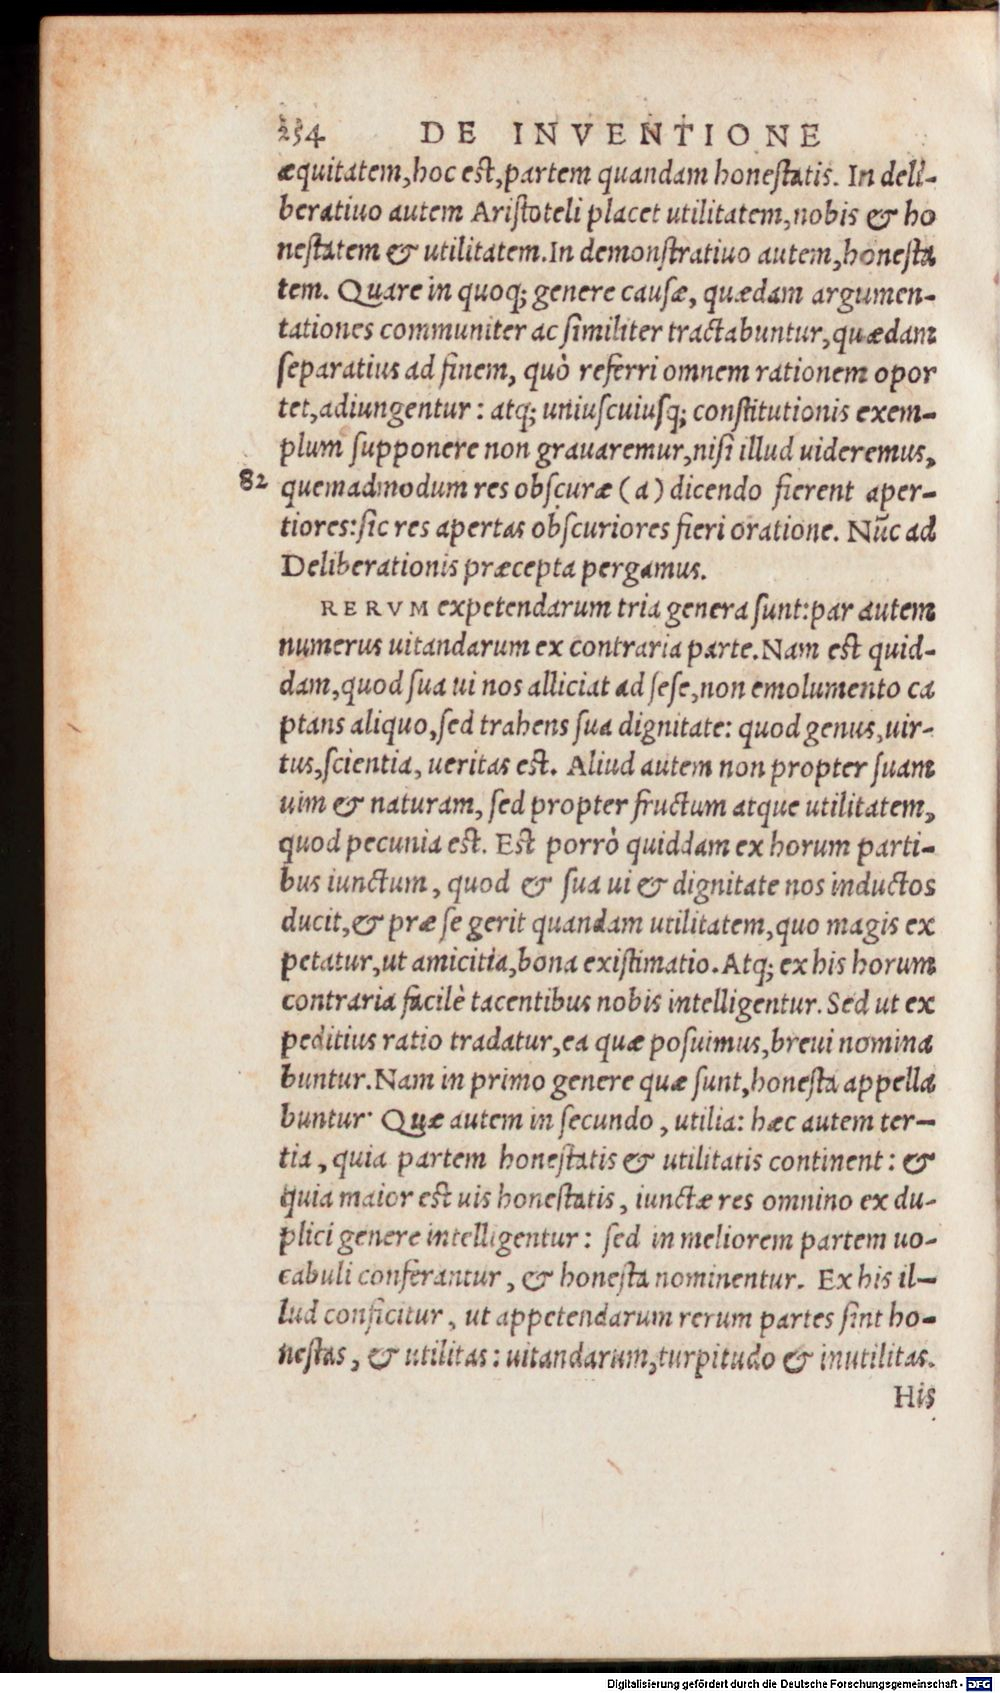 254 DE INVENTIONE
æquitatem, hoc est, partem quandam honestatis. In deli-
beratiuo autem Aristoteli placet utilitatem, nobis & ho
nestatem & utilitatem. In demonstratiuo autem, honesta
tem. Quare in quoq; genere causæ, quædam argumen-
tationes communiter ac similiter tractabuntur, quædam
separatius ad finem, quò referri omnem rationem opor
tet, adiungentur: atq; uniuscuiusq; constitutionis exem-
plum supponere non grauaremur, nisi illud uideremus,
82 quemadmodum res obscuræ (a) dicendo fierent aper-
tiores: sic res apertas obscuriores fieri oratione. Nūc ad
Deliberationis præcepta pergamus.
RERVM expetendarum tria genera sunt: par autem
numerus uitandarum ex contraria parte. Nam est quid-
dam, quod sua ui nos alliciat ad sese, non emolumento ca
ptans aliquo, sed trahens sua dignitate: quod genus, uir-
tus, scientia, ueritas est. Aliud autem non propter suam
uim & naturam, sed propter fructum atque utilitatem,
quod pecunia est. Est porrò quiddam ex horum parti-
bus iunctum, quod & sua ui & dignitate nos inductos
ducit, & præ se gerit quandam utilitatem, quo magis ex
petatur, ut amicitia, bona existimatio. Atq; ex his horum
contraria facilè tacentibus nobis intelligentur. Sed ut ex
peditius ratio tradatur, ea quæ posuimus, breui nomina
buntur. Nam in primo genere quæ sunt, honesta appella
buntur· Quæ autem in secundo, utilia: hæc autem ter-
tia, quia partem honestatis & utilitatis continent: &
quia maior est uis honestatis, iunctæ res omnino ex du-
plici genere intelligentur: sed in meliorem partem uo-
cabuli conferantur, & honesta nominentur. Ex his il-
lud conficitur, ut appetendarum rerum partes sint ho-
nestas, & utilitas: uitandarum, turpitudo & inutilitas.
His
Digitalisierung gefördert durch die Deutsche Forschungsgemeinschaft - DFG